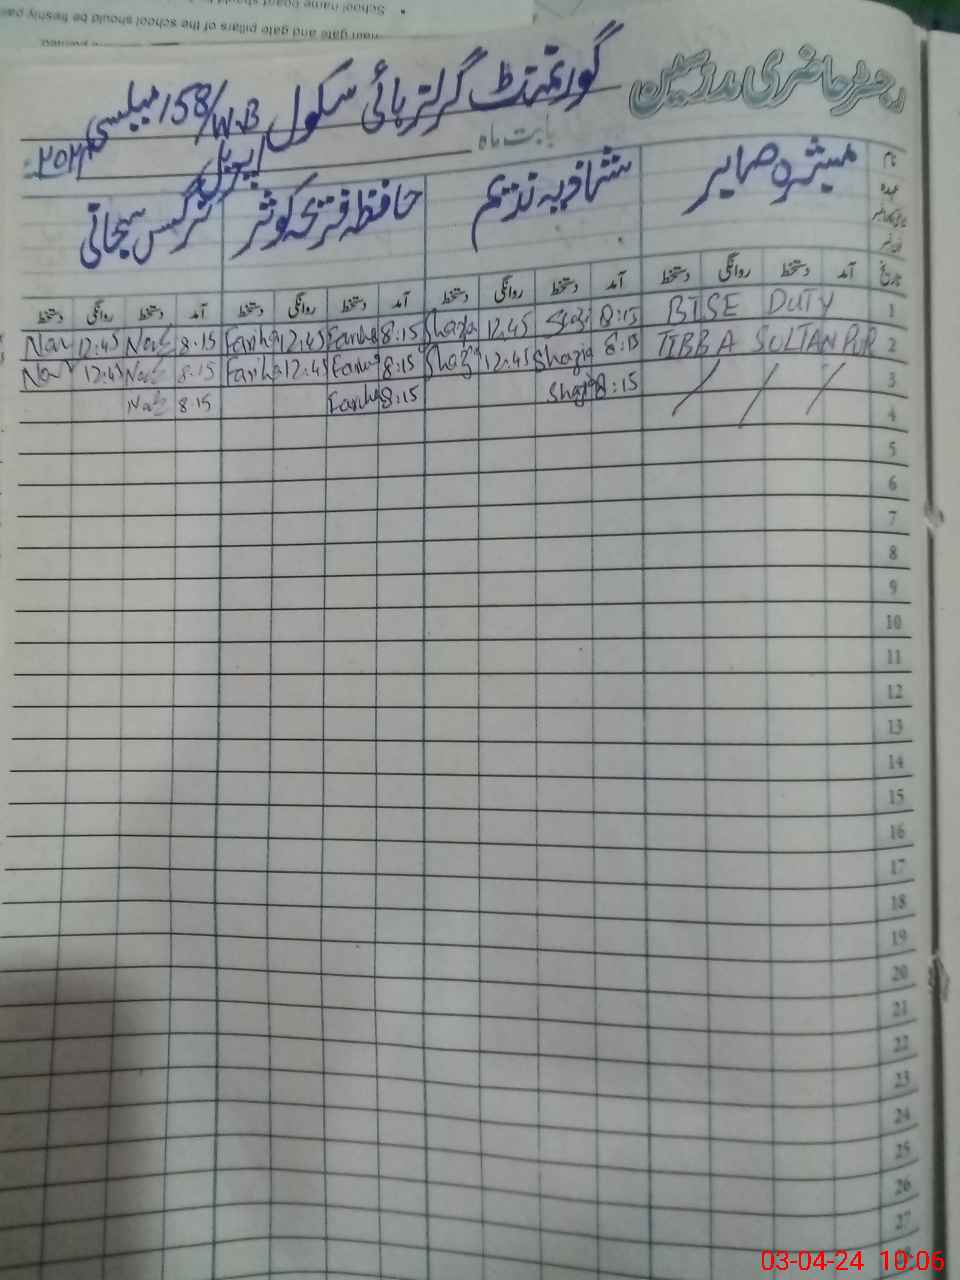 School name board should
main gate and gate pillars of the school should be freshly
رجسٹر حاضری مدرسین
گورنمنٹ گرلز ہائی سکول 158/W.B میلسی
بابت ماہ اپریل ۲۰۲۴
نام
عہدہ
مبشرہ صابر
شازیہ ندیم
حافظہ فریحہ کوثر
نرگس سبحانی
تاریخ آمد دستخط روانگی دستخط آمد دستخط روانگی دستخط آمد دستخط روانگی دستخط آمد دستخط روانگی دستخط
1 BISE DUTY 8:15 Shazi 12.45 Shazia 8:15 Fariha 12:45 Fariha 8.15 12:45
2 TIBBA SULTAN PUR 8:15 Shazia 12:45 8:15 Fariha 12:45 Fariha 8:15 12:45
3 / / / 8:15 Shazia 8:15 Fariha 8.15
4
5
6
7
8
9
10
11
12
13
14
15
16
17
18
19
20
21
22
23
24
25
26
27
03-04-24 10:06